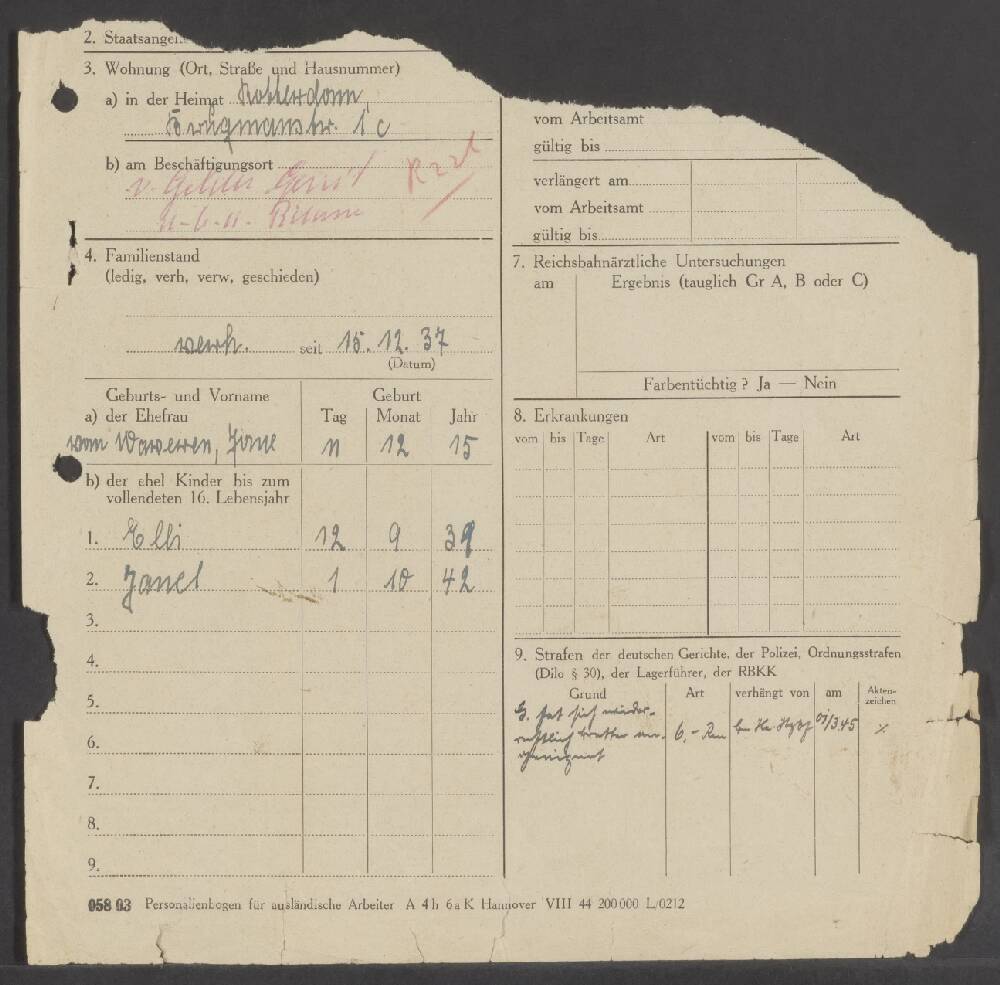 2. Staatsange
3. Wohnung (Ort, Straße und Hausnummer)
a) in der Heimat Rotterdam
1 c
b) am Beschäftigungsort
v. Gelder Gerrit
4. Familienstand
(ledig, verh, verw, geschieden)
verh. seit 15. 12. 37
(Datum)
Geburts- und Vorname Geburt
a) der Ehefrau Tag Monat Jahr
van 11 12 15
b) der ehel Kinder bis zum
vollendeten 16. Lebensjahr
1. Elli 12 9 39
2. 1 10 42
3.
4.
5.
6.
7.
8.
9.
058 03 Personalienbogen für ausländische Arbeiter A 4 h 6 a K Hannover VIII 44 200 000 L/0212
vom Arbeitsamt
gültig bis
verlängert am
vom Arbeitsamt
gültig bis
7. Reichsbahnärztliche Untersuchungen
am Ergebnis (tauglich Gr A, B oder C)
Farbentüchtig? Ja — Nein
8. Erkrankungen
vom bis Tage Art vom bis Tage Art
9. Strafen der deutschen Gerichte, der Polizei, Ordnungsstrafen
(Dilo § 30), der Lagerführer, der RBKK
Grund Art verhängt von am Akten-
zeichen
G. hat sich wider-
rechtlich Bretter an- 6.- Rm x
geeignet